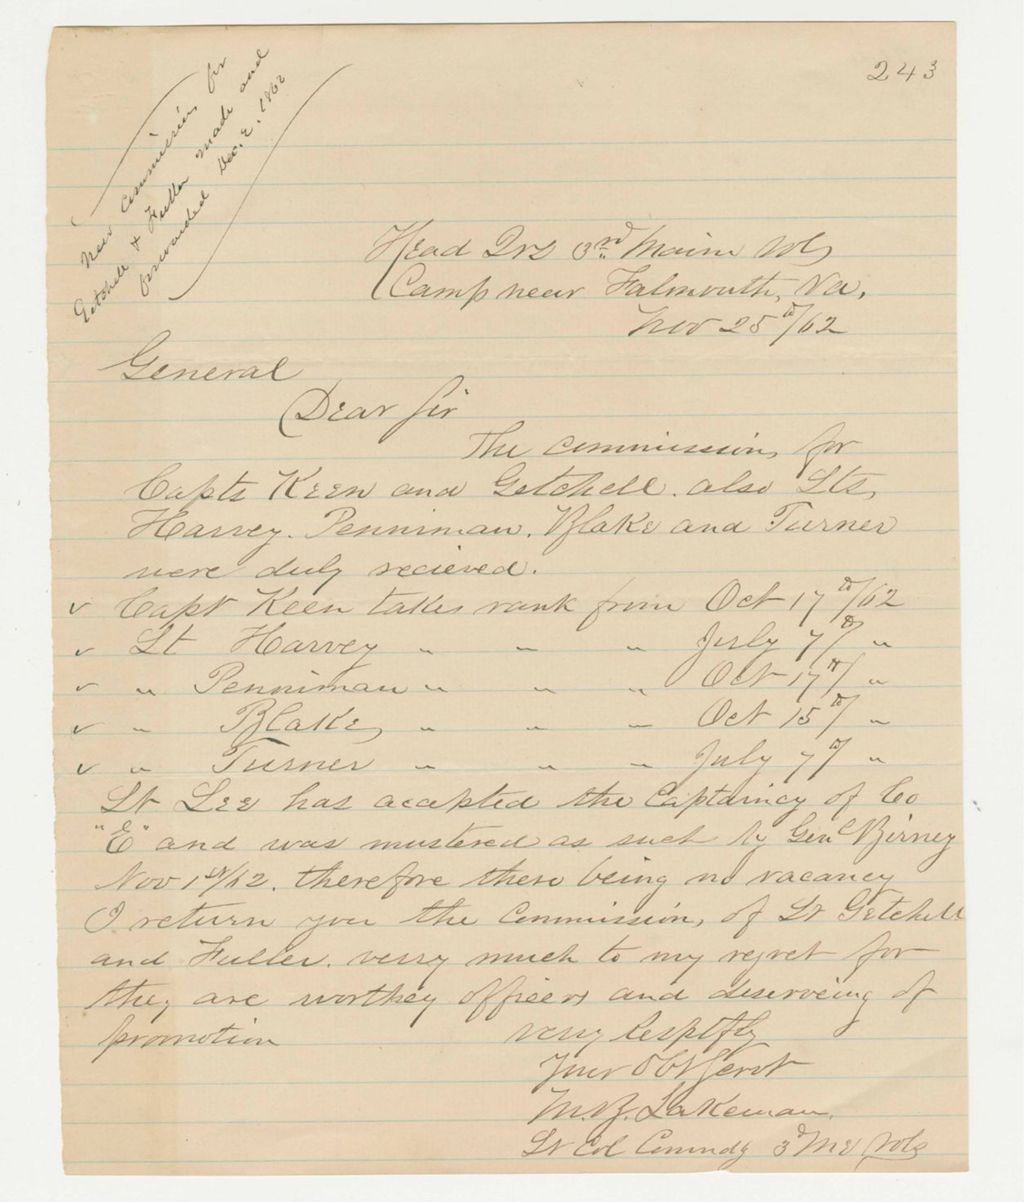 243
New commissions for
Getchell & Fuller made and
forwarded Dec. 2, 1862
Head Qrs 3rd Maine Vols
Camp near Falmouth, Va,
Nov 25th/62
General
Dear Sir
The commissions for
Capts Keen and Getchell. also Lts,
Harvey. Penniman. Blake and Turner
were duly recieved.
v Capt Keen takes rank from Oct 17th/62
v Lt Harvey " " " July 7th/ "
v " Penniman " " " Oct 17th/ "
v " Blake " " " Oct 15th/ "
v " Turner " " " July 7th/ "
Lt Lee has accepted the Captaincy of Co
"E" and was mustered as such by Genl Birney
Nov 1st/62. therefore there being no vacancy
I return you the Commissions, of Lt Getchell
and Fuller. verry much to my regret for
they are worthey officers and deserveing of
promotion
very Respctfly
Your Obt Servt
M.B. Lakeman.
Lt Col Commdg 3d Me Vols